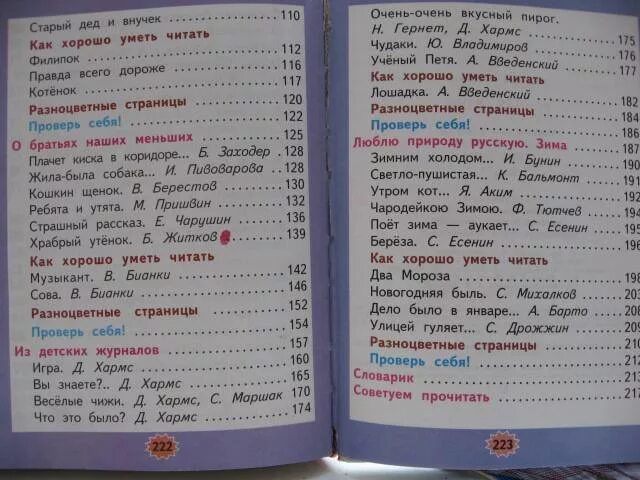 Старый дед и внучек 110
Как хорошо уметь читать
Филипок 112
Правда всего дороже 116
Котёнок 117
Разноцветные страницы 120
Проверь себя! 122
О братьях наших меньших 125
Плачет киска в коридоре... Б. Заходер 128
Жила-была собака... И. Пивоварова 128
Кошкин щенок. В. Берестов 130
Ребята и утята. М. Пришвин 132
Страшный рассказ. Е. Чарушин 136
Храбрый утёнок. Б. Житков 139
Как хорошо уметь читать
Музыкант. В. Бианки 142
Сова. В. Бианки 146
Разноцветные страницы 152
Проверь себя! 154
Из детских журналов 157
Игра. Д. Хармс 160
Вы знаете?.. Д. Хармс 165
Весёлые чижи. Д. Хармс, С. Маршак 170
Что это было? Д. Хармс 174
222
Очень-очень вкусный пирог.
Н. Гернет, Д. Хармс 175
Чудаки. Ю. Владимиров 176
Учёный Петя. А. Введенский 177
Как хорошо уметь читать
Лошадка. А. Введенский 182
Разноцветные страницы 184
Проверь себя! 186
Люблю природу русскую. Зима 187
Зимним холодом... И. Бунин 190
Светло-пушистая... К. Бальмонт 191
Утром кот... Я. Аким 192
Чародейкою Зимою. Ф. Тютчев 194
Поёт зима — аукает... С. Есенин 195
Берёза. С. Есенин
Как хорошо уметь читать
Два Мороза 198
Новогодняя быль. С. Михалков
Дело было в январе... А. Барто
Улицей гуляет... С. Дрожжин
Разноцветные страницы 210
Проверь себя!
Словарик
Советуем прочитать
223